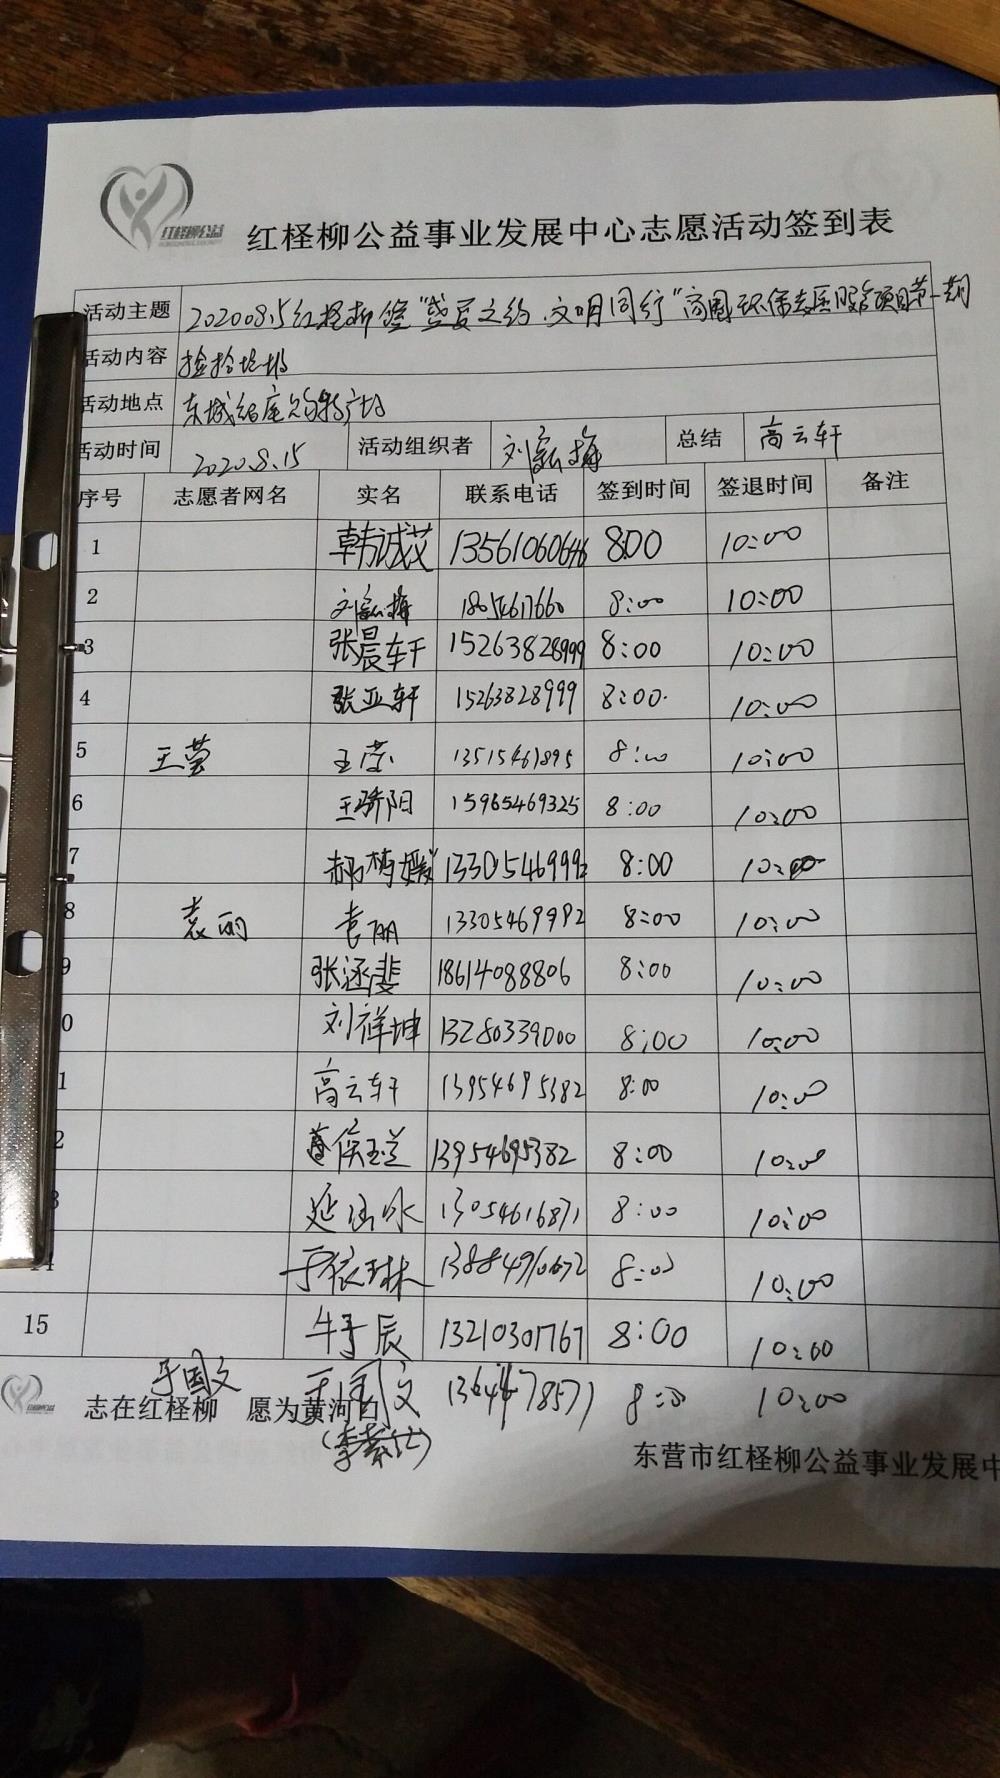 红柽柳公益
红柽柳公益事业发展中心志愿活动签到表
活动主题 红柽柳 "盛夏之约·文明同行" 商圈环保志愿服务项目第一期
活动内容 捡拾垃圾
活动地点 东城 广场
活动时间 2020.8.15 活动组织者 刘 梅 总结 高云轩
序号 志愿者网名 实名 联系电话 签到时间 签退时间 备注
1 韩诚 8:00 10:00
2 刘 梅 18054617660 8:00 10:00
3 张晨轩 15263828999 8:00 10:00
4 张亚轩 15263828999 8:00 10:00
5 王莹 王莹 13515461895 8:00 10:00
6 王骄阳 15965469325 8:00 10:00
7 郝梅媛 13305469992 8:00 10:00
8 袁丽 袁丽 13305469992 8:00 10:00
9 张涵斐 18614088806 8:00 10:00
0 刘祥坤 13280339000 8:00 10:00
1 高云轩 13954695382 8:00 10:00
2 侯玉兰 13954695382 8:00 10:00
3 延 冰 13054616871 8:00 10:00
14 于依琳 8:00 10:00
15 牛于辰 13210301767 8:00 10:00
于国文 于国文 8:00 10:00
志在红柽柳 愿为黄河白
东营市红柽柳公益事业发展中